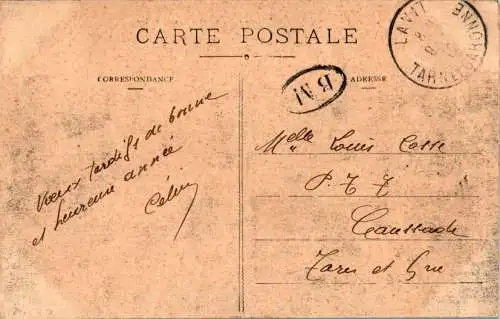 CARTE POSTALE
CORRESPONDANCE
ADRESSE
BM
LAVIT
TARN ET GARONNE
Vœux tardifs de bonne
et heureuse année
Melle Louis Casse
P. T T
Caussade
Tarn et Gne